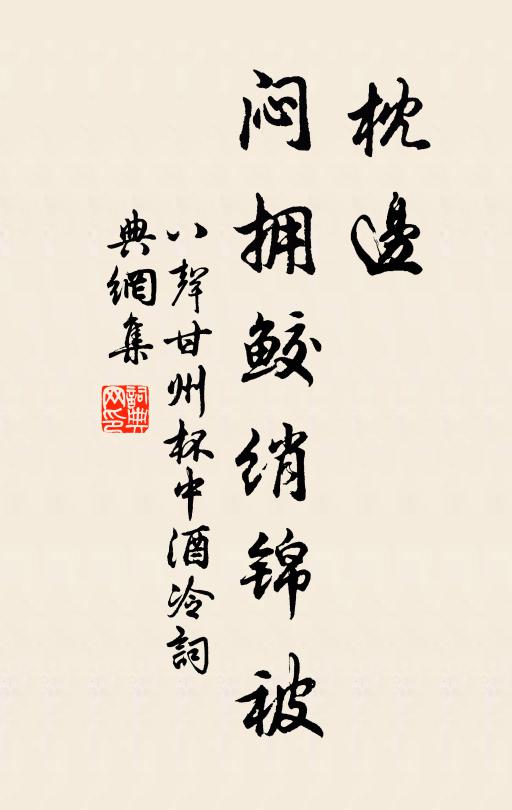 枕邊
闷拥鲛绡锦被
八聲甘州杯中酒冷詞
典網集
詞典网印